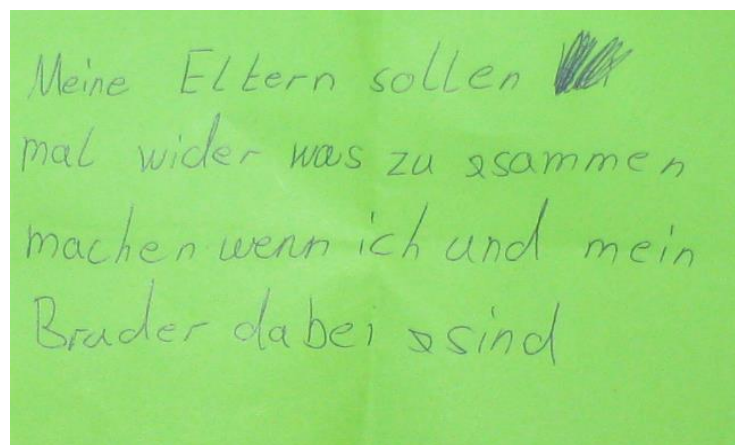 Meine Eltern sollen
mal wider was zu sammen
machen wenn ich und mein
Bruder dabei sind